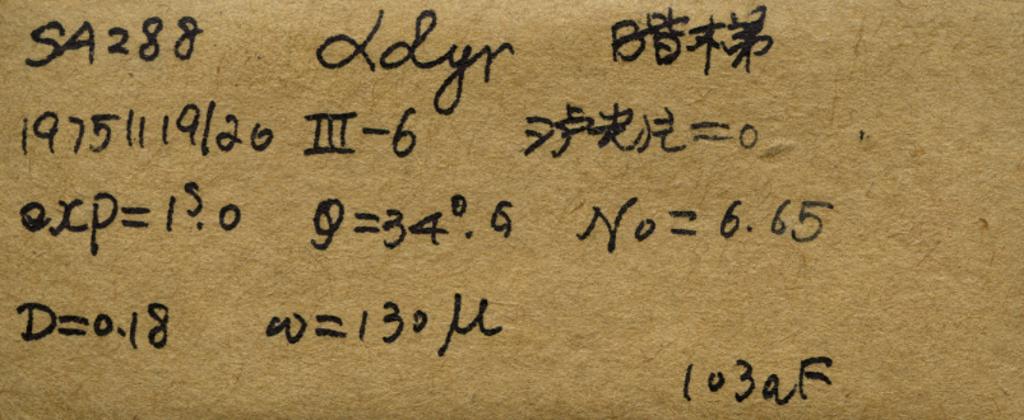 SA288 αLyr B暗梯
19751119/20 III-6 滤光片=0
exp=1ˢ.0 φ=34°.6 N₀=6.65
D=0.18 ω=130μ
103aF